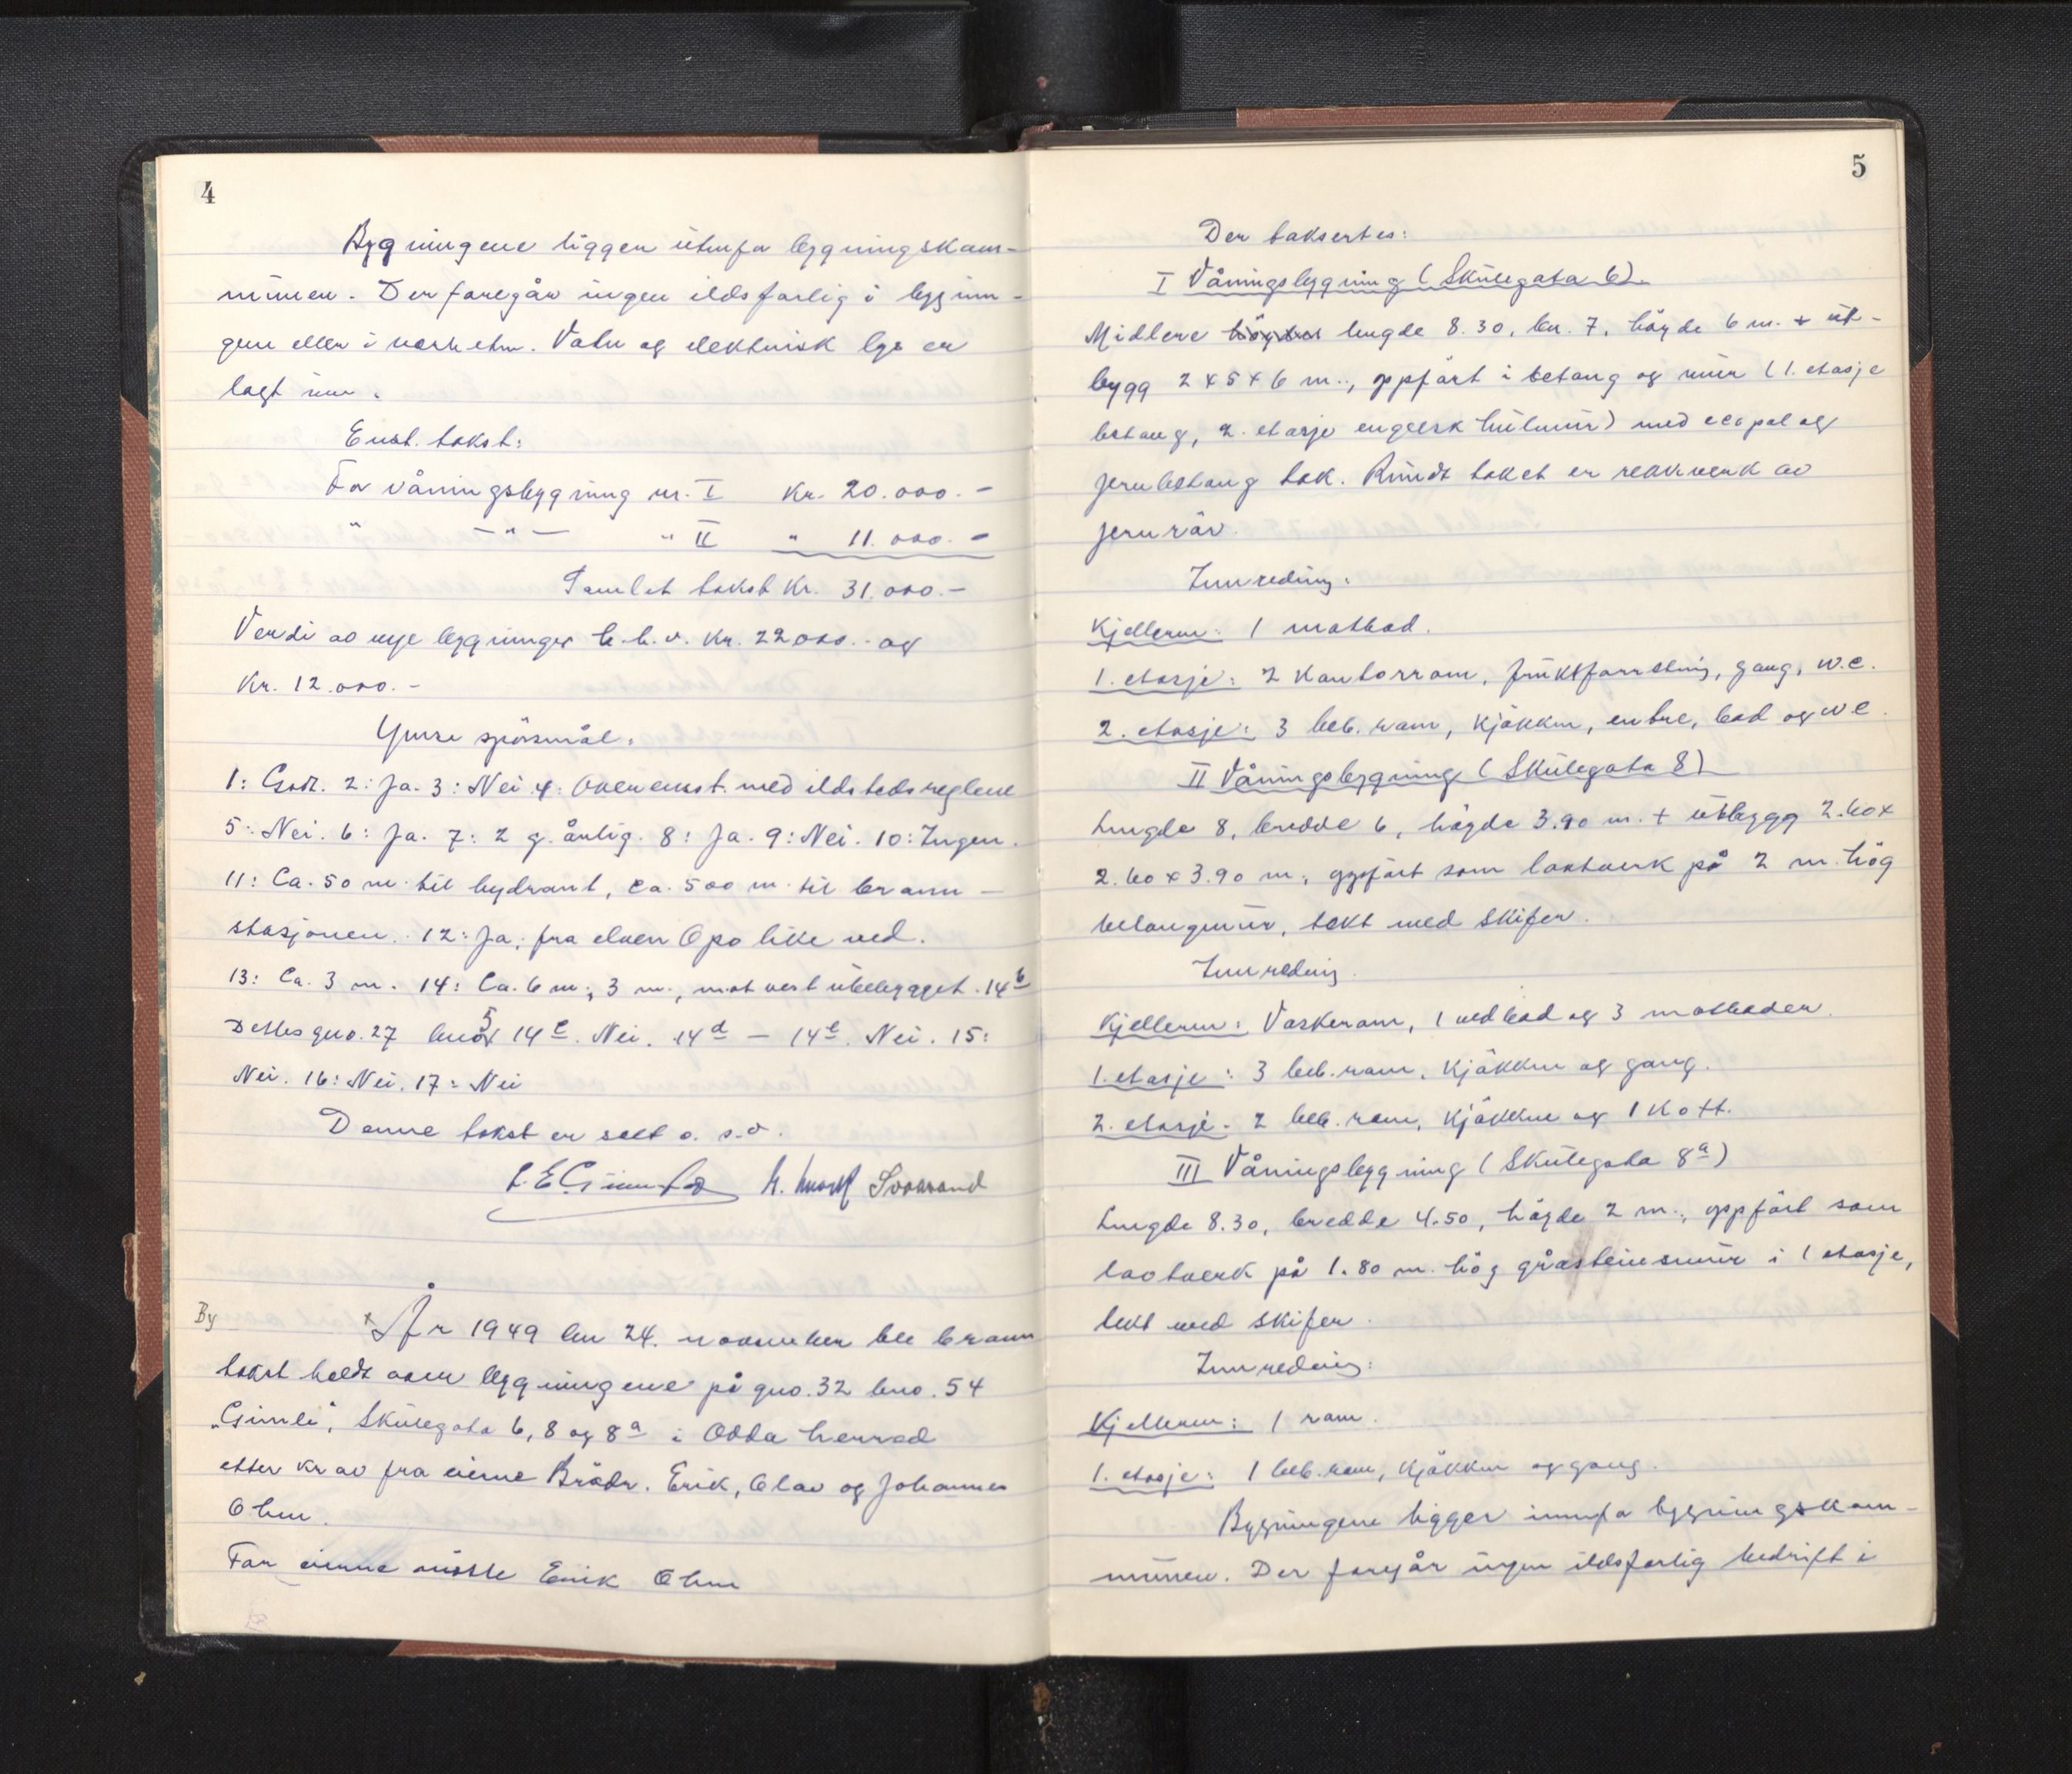 4
Bygningene ligger utenfor bygningskom-
munen. Der foregår ingen ildsfarlig i bygnin-
gene eller i nærheten. Vatn og elektrisk lys er
lagt inn.
Enst. takst:
For våningsbygning nr. I Kr. 20.000.-
" —"— " II " 11.000.-
Samlet takst Kr. 31.000.-
Verdi av nye bygninger h.h.v. Kr. 22000.- og
Kr. 12.000.-
Ymse spörsmål.
1: God. 2: Ja. 3: Nei 4: Overenst. med ildstedsreglene
5: Nei. 6: Ja. 7: 2 g. årlig. 8: Ja. 9: Nei. 10: Ingen.
11: Ca. 50 m. til hydrant, ca. 500 m. til brann-
stasjonen. 12: Ja, fra elven Opo like ved.
13: Ca. 3 m. 14: Ca. 6 m., 3 m., mot vest ubebygget. 14b
Dettes gno. 27 bno 5 14c. Nei. 14d — 14e. Nei. 15:
Nei. 16: Nei. 17: Nei
Denne takst er sett o. s. v.
By
År 1949 den 24. november ble brann
takst holdt over bygningene på gno. 32 bno. 54
"Gimle", Skulegata 6, 8 og 8a i Odda herred
etter krav fra eierne Brödr. Erik, Olav og Johannes
Ohm.
For eierne møtte Erik Ohm
5
Der taksertes:
I Våningsbygning (Skulegata 6).
Midlere högde lengde 8.30, br. 7, högde 6 m. + ut-
bygg 2 x 5 x 6 m., oppfört i betong og mur (1. etasje
betong, 2. etasje engelsk hulmur) med ecopal og
jernbetong tak. Rundt taket er rekkverk av
jernrör.
Innreding.
Kjelleren: 1 matbod.
1. etasje: 2 kontorrom, fruktforretning, gang, w.c.
2. etasje: 3 beb. rom, kjökken, entre, bad og wc.
II Våningsbygning (Skulegata 8)
Lengde 8, bredde 6, högde 3.90 m. + utbygg 2.60x
2.60 x 3.90 m., oppfört som laftverk på 2 m. hög
betongmur, tekt med skifer.
Innreding.
Kjelleren: Vaskerom, 1 vedbod og 3 matboder.
1. etasje: 3 beb. rom, kjökken og gang.
2. etasje. 2 beb. rom, kjökken og 1 kott.
III Våningsbygning (Skulegata 8a)
Lengde 8.30, bredde 4.50, högde 2 m., oppfört som
laftverk på 1.80 m. hög gråsteinsmur i 1 etasje,
tekt med skifer.
Innreding:
Kjelleren: 1 rom.
1. etasje: 1 beb. rom, kjökken og gang.
Bygningene ligger innfor bygningskom-
munen. Der foregår ingen ildsfarlig bedrift i